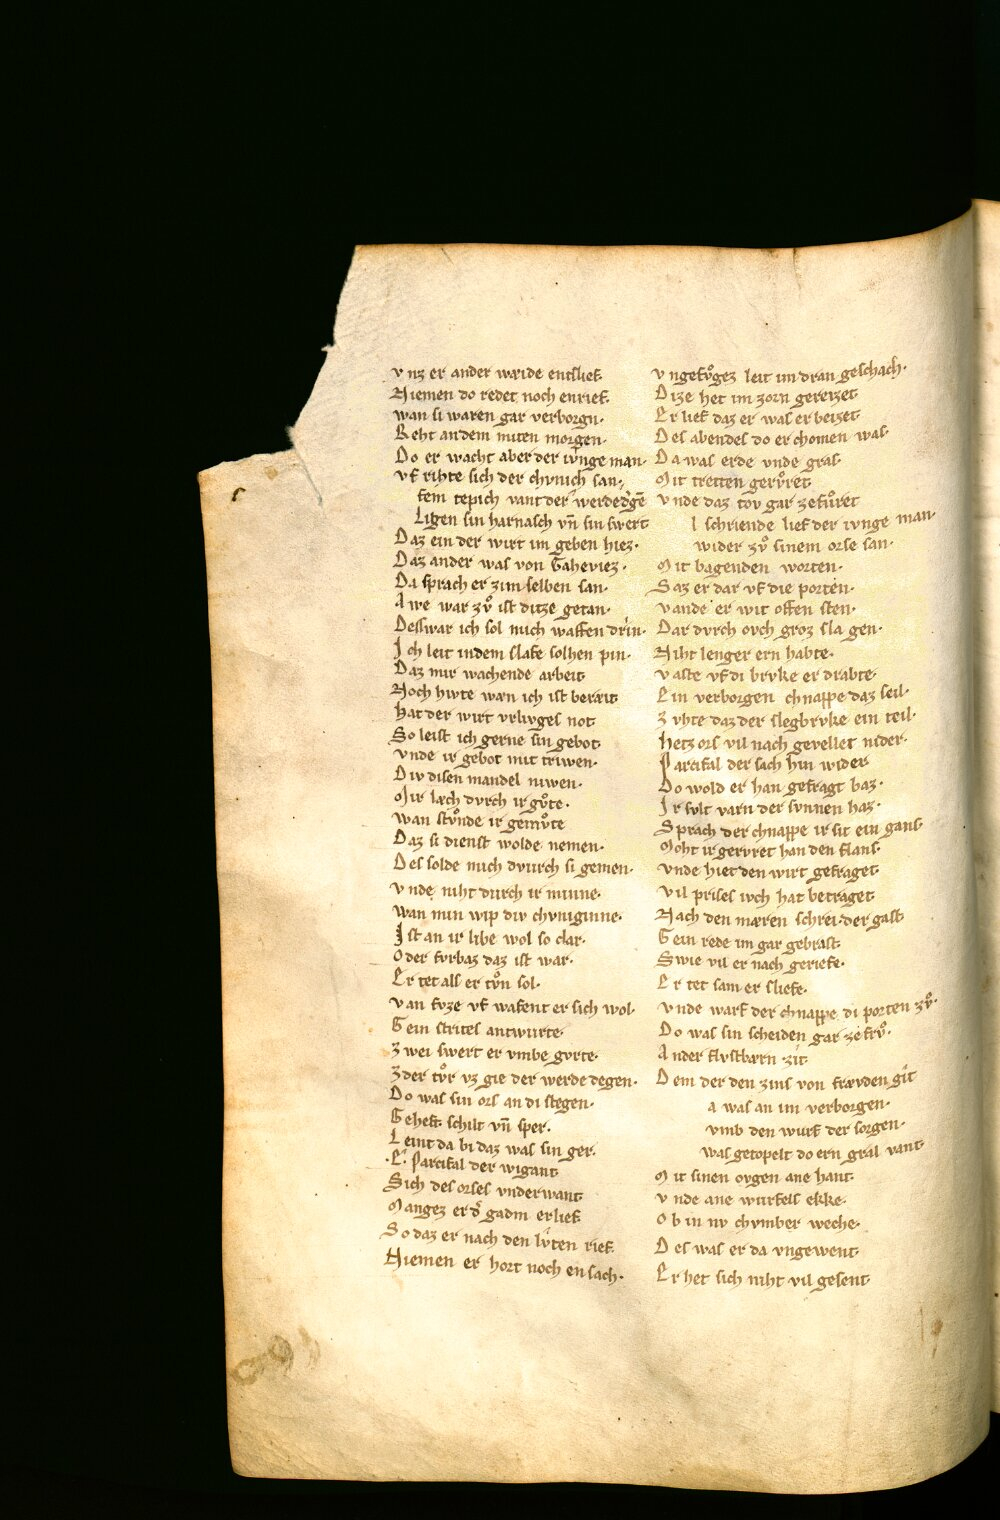 v nz er ander wæide entslief.
Niemen do redet noch enrief.
wan si waren gar verborgn.
Reht andem miten morgen.
Do er wacht aber der ivnge man.
vf rihte sich der chvnich san.
fem tepich vant der werdedgē
Ligen sin harnasch vn̄ sin swert
Daz ein der wirt im geben hiez.
Daz ander was von Gaheviez.
Da sprach er zim selben san.
A we war zvͦ ist ditze getan.
Desswar ich sol mich waffen drin.
Ich leit indem slafe solhen pin.
Daz mir wachende arbeit
Noch hivte wæn ich ist beræit
hat der wirt vrlivges not
So leist ich gerne sin gebot.
vnde ir gebot mit triwen.
Div disen mandel niwen.
Mir læch dvrch ir gvͦte.
wan stvͦnde ir gemvͦte
Daz si dienst wolde nemen.
Des solde mich dvurch si gemen.
v nde niht durch ir minne.
wan min wip div chvniginne.
Ist an ir libe wol so clar.
Oder fvrbaz daz ist war.
Er tet alls er tvͦn sol.
van fvze vf wafent er sich wol.
Gein strites antwurte.
Zwei swert er vmbe gvrte.
Zder tvͦr vz gie der werde degen.
Do was sin ors an di stegen.
Geheft. schilt vn̄ sper.
Leint da bi daz was sin ger.
.E. Parcifal der wigant
Sich des orses vnderwant
Mangez er dͣ gadm erlief
So daz er nach den lvͤten rief.
Niemen er hort noch ensach.
v ngefvͦgez leit im dran geschach.
Dize het im zorn gereizet
Er lief daz er was erbeizet
Des abendes do er chomen was.
Da was erde vnde gras.
Mit tretten gervͤret
vnde daz tov gar zefvͤret
l schriende lief der ivnge man.
wider zvͦ sinem orse san.
Mit bagenden worten.
Saz er dar vf die porten.
vande er wit offen sten.
Dar dvrch ovch groz sla gen.
Niht lenger ern habte.
vaste vf di brvke er drabte.
Ein verborgen chnappe daz seil.
Zvhte daz der slegbrvke ein teil.
hetz ors vil nach gevellet nider.
Parcifal der sach hin wider
Do wold er han gefragt baz.
Ir svlt varn der svnnen haz.
Sprach der chnappe ir sit ein gans
Moht ir gervret han den flans.
vnde hiet den wirt gefraget.
vil prises ivch hat betraget
Nach den mæren schrei der gast
Gein rede im gar gebrast.
Swie vil er nach geriefe.
Er tet sam er sliefe.
vnde warf der chnappe di porten zvͦ.
Do was sin scheiden gar ze frvͦ.
Ander flvstbærn zit
Dem der den zins von frævden git
a was an im verborgen.
vmb den wurf der sorgen.
was getopelt do ern gral vant
Mit sinen ovgen ane hant.
v nde ane wurfels ekke.
Ob in nv chvmber weche.
Des was er da vngewent
Er het sich niht vil gesent